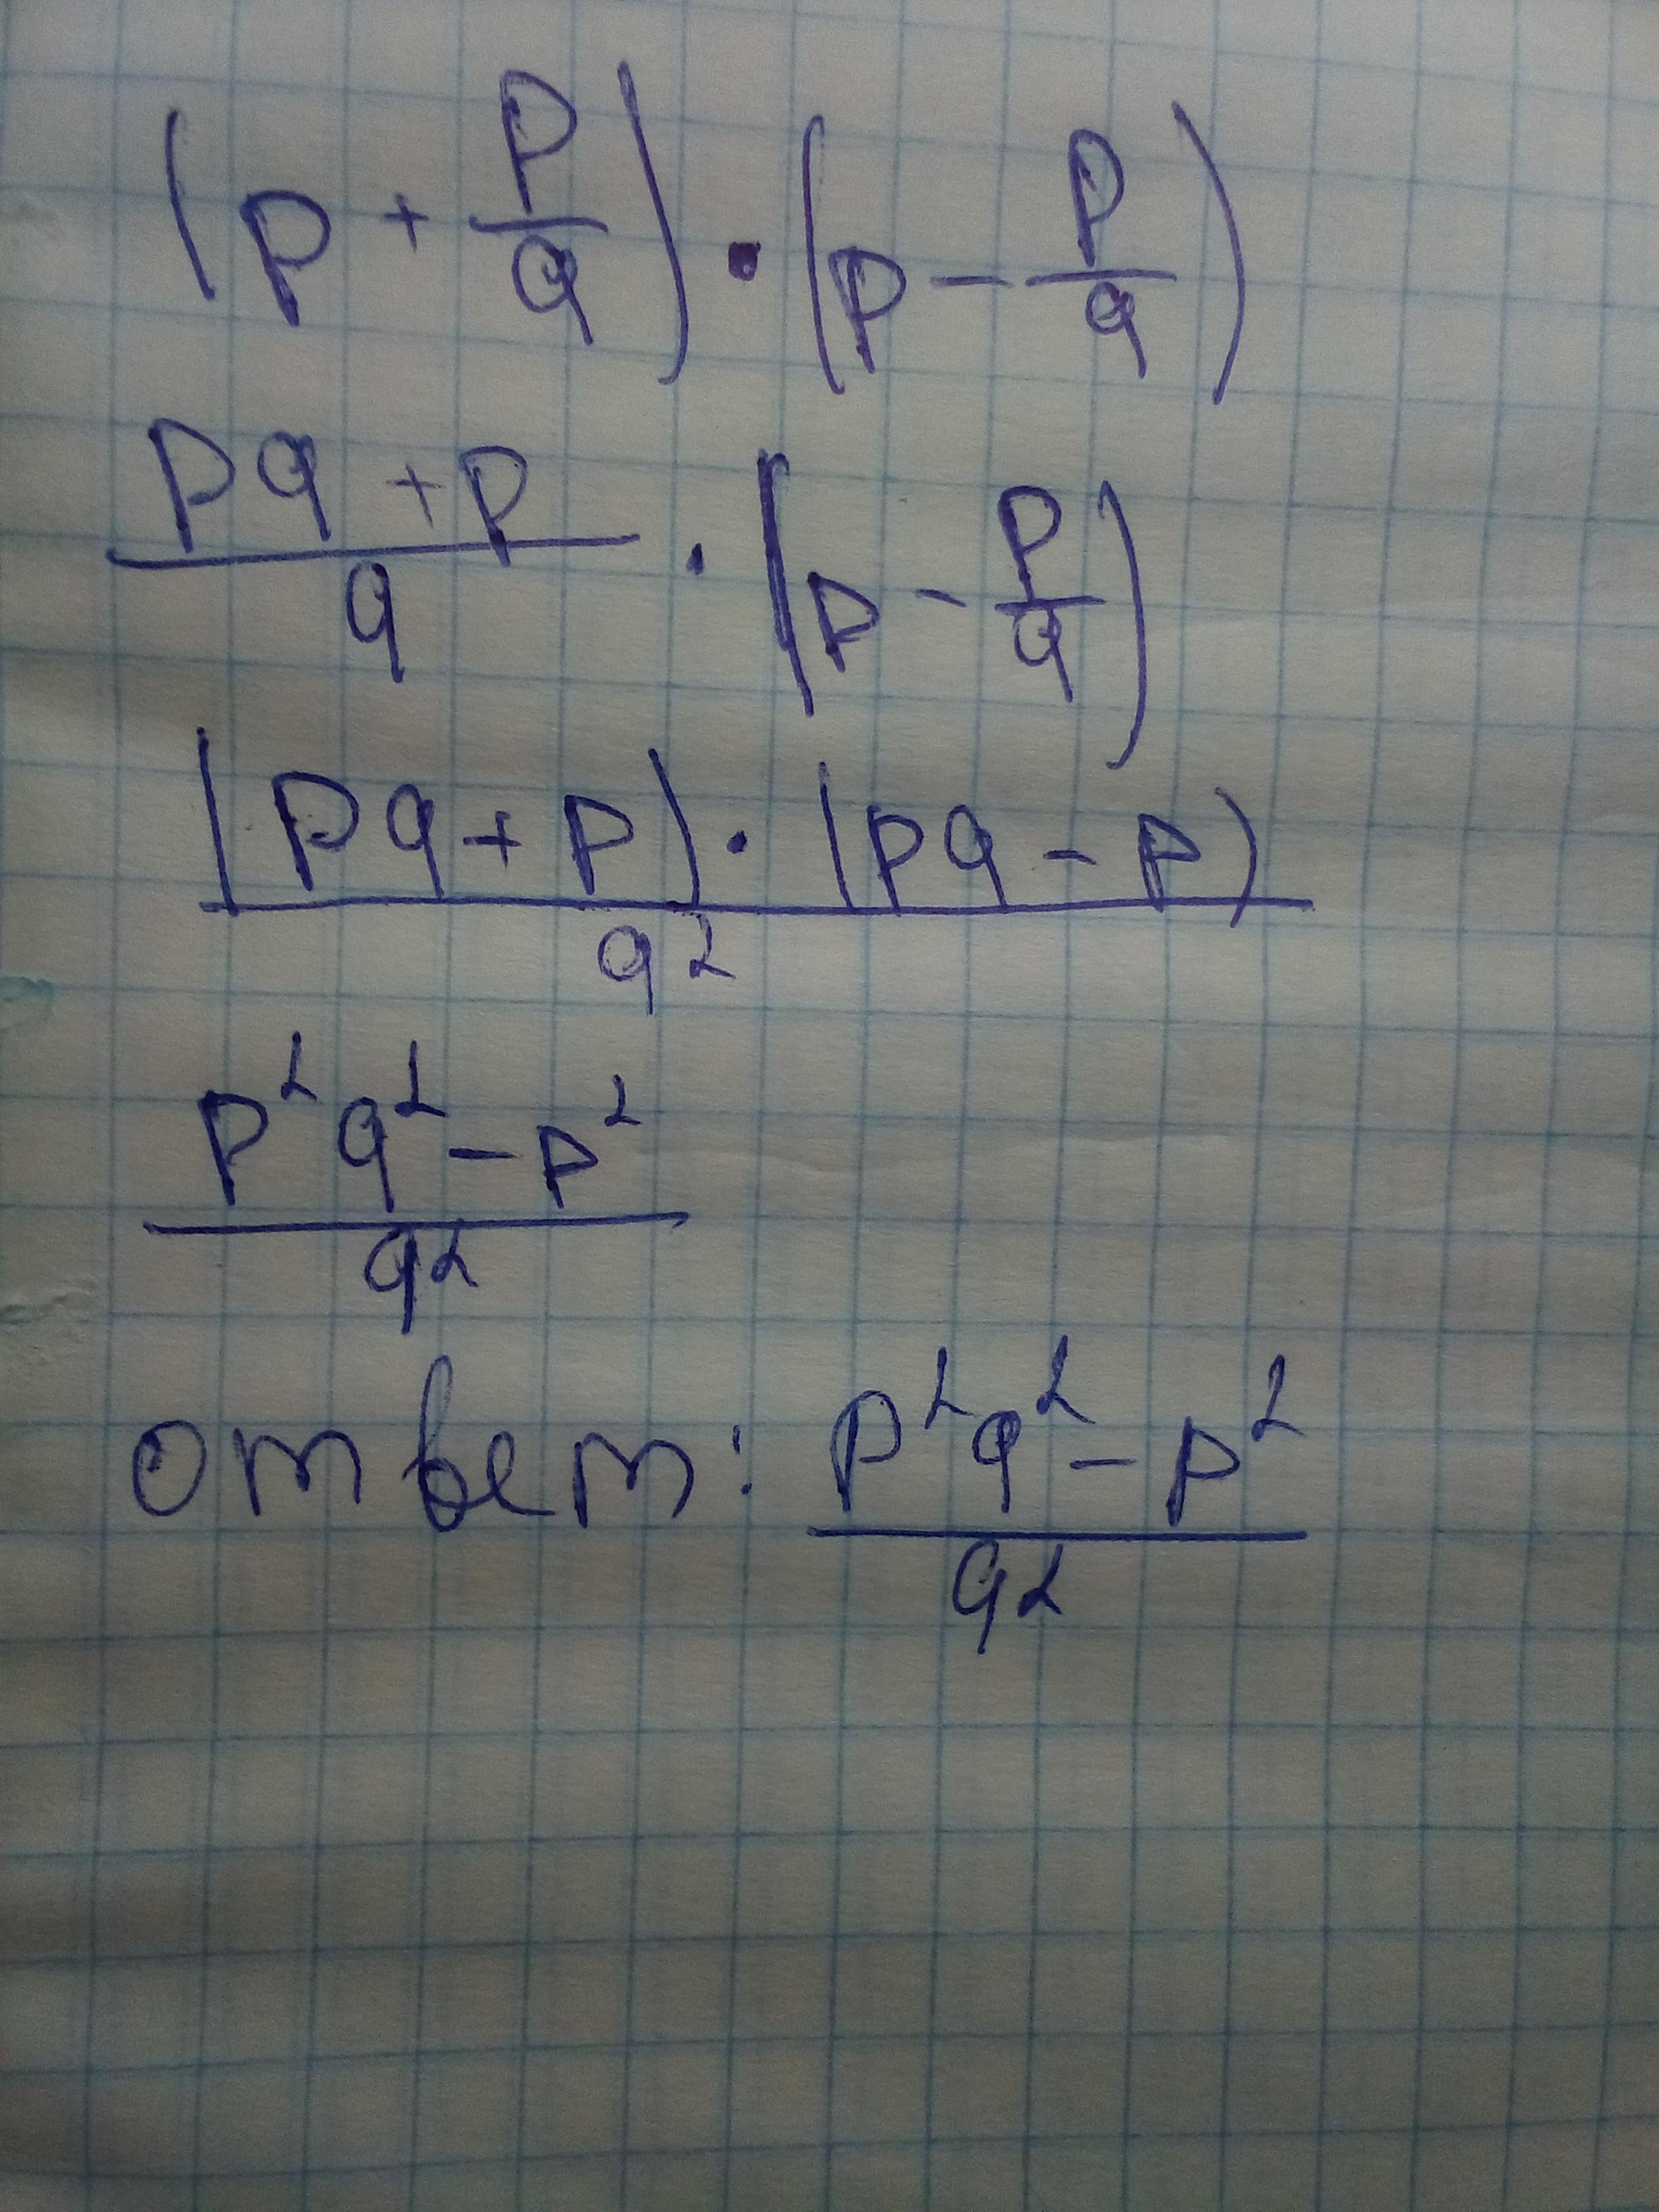 (p + p/q) · (p - p/q)
pq + p / q · (p - p/q)
(pq + p) · (pq - p) / q²
p²q² - p² / q²
ответ: p²q² - p² / q²